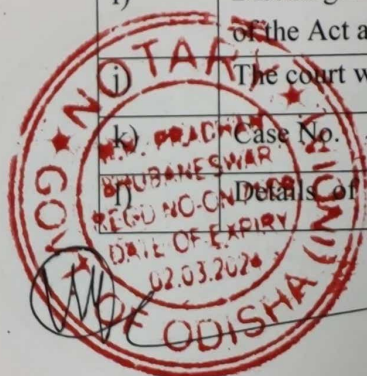 of the Act a
j) The court w
k) Case No.
l) Details of
NOTARY
GOVT OF ODISHA
BHUBANESWAR
REGD NO-ON
DATE OF EXPIRY
02.03.2024